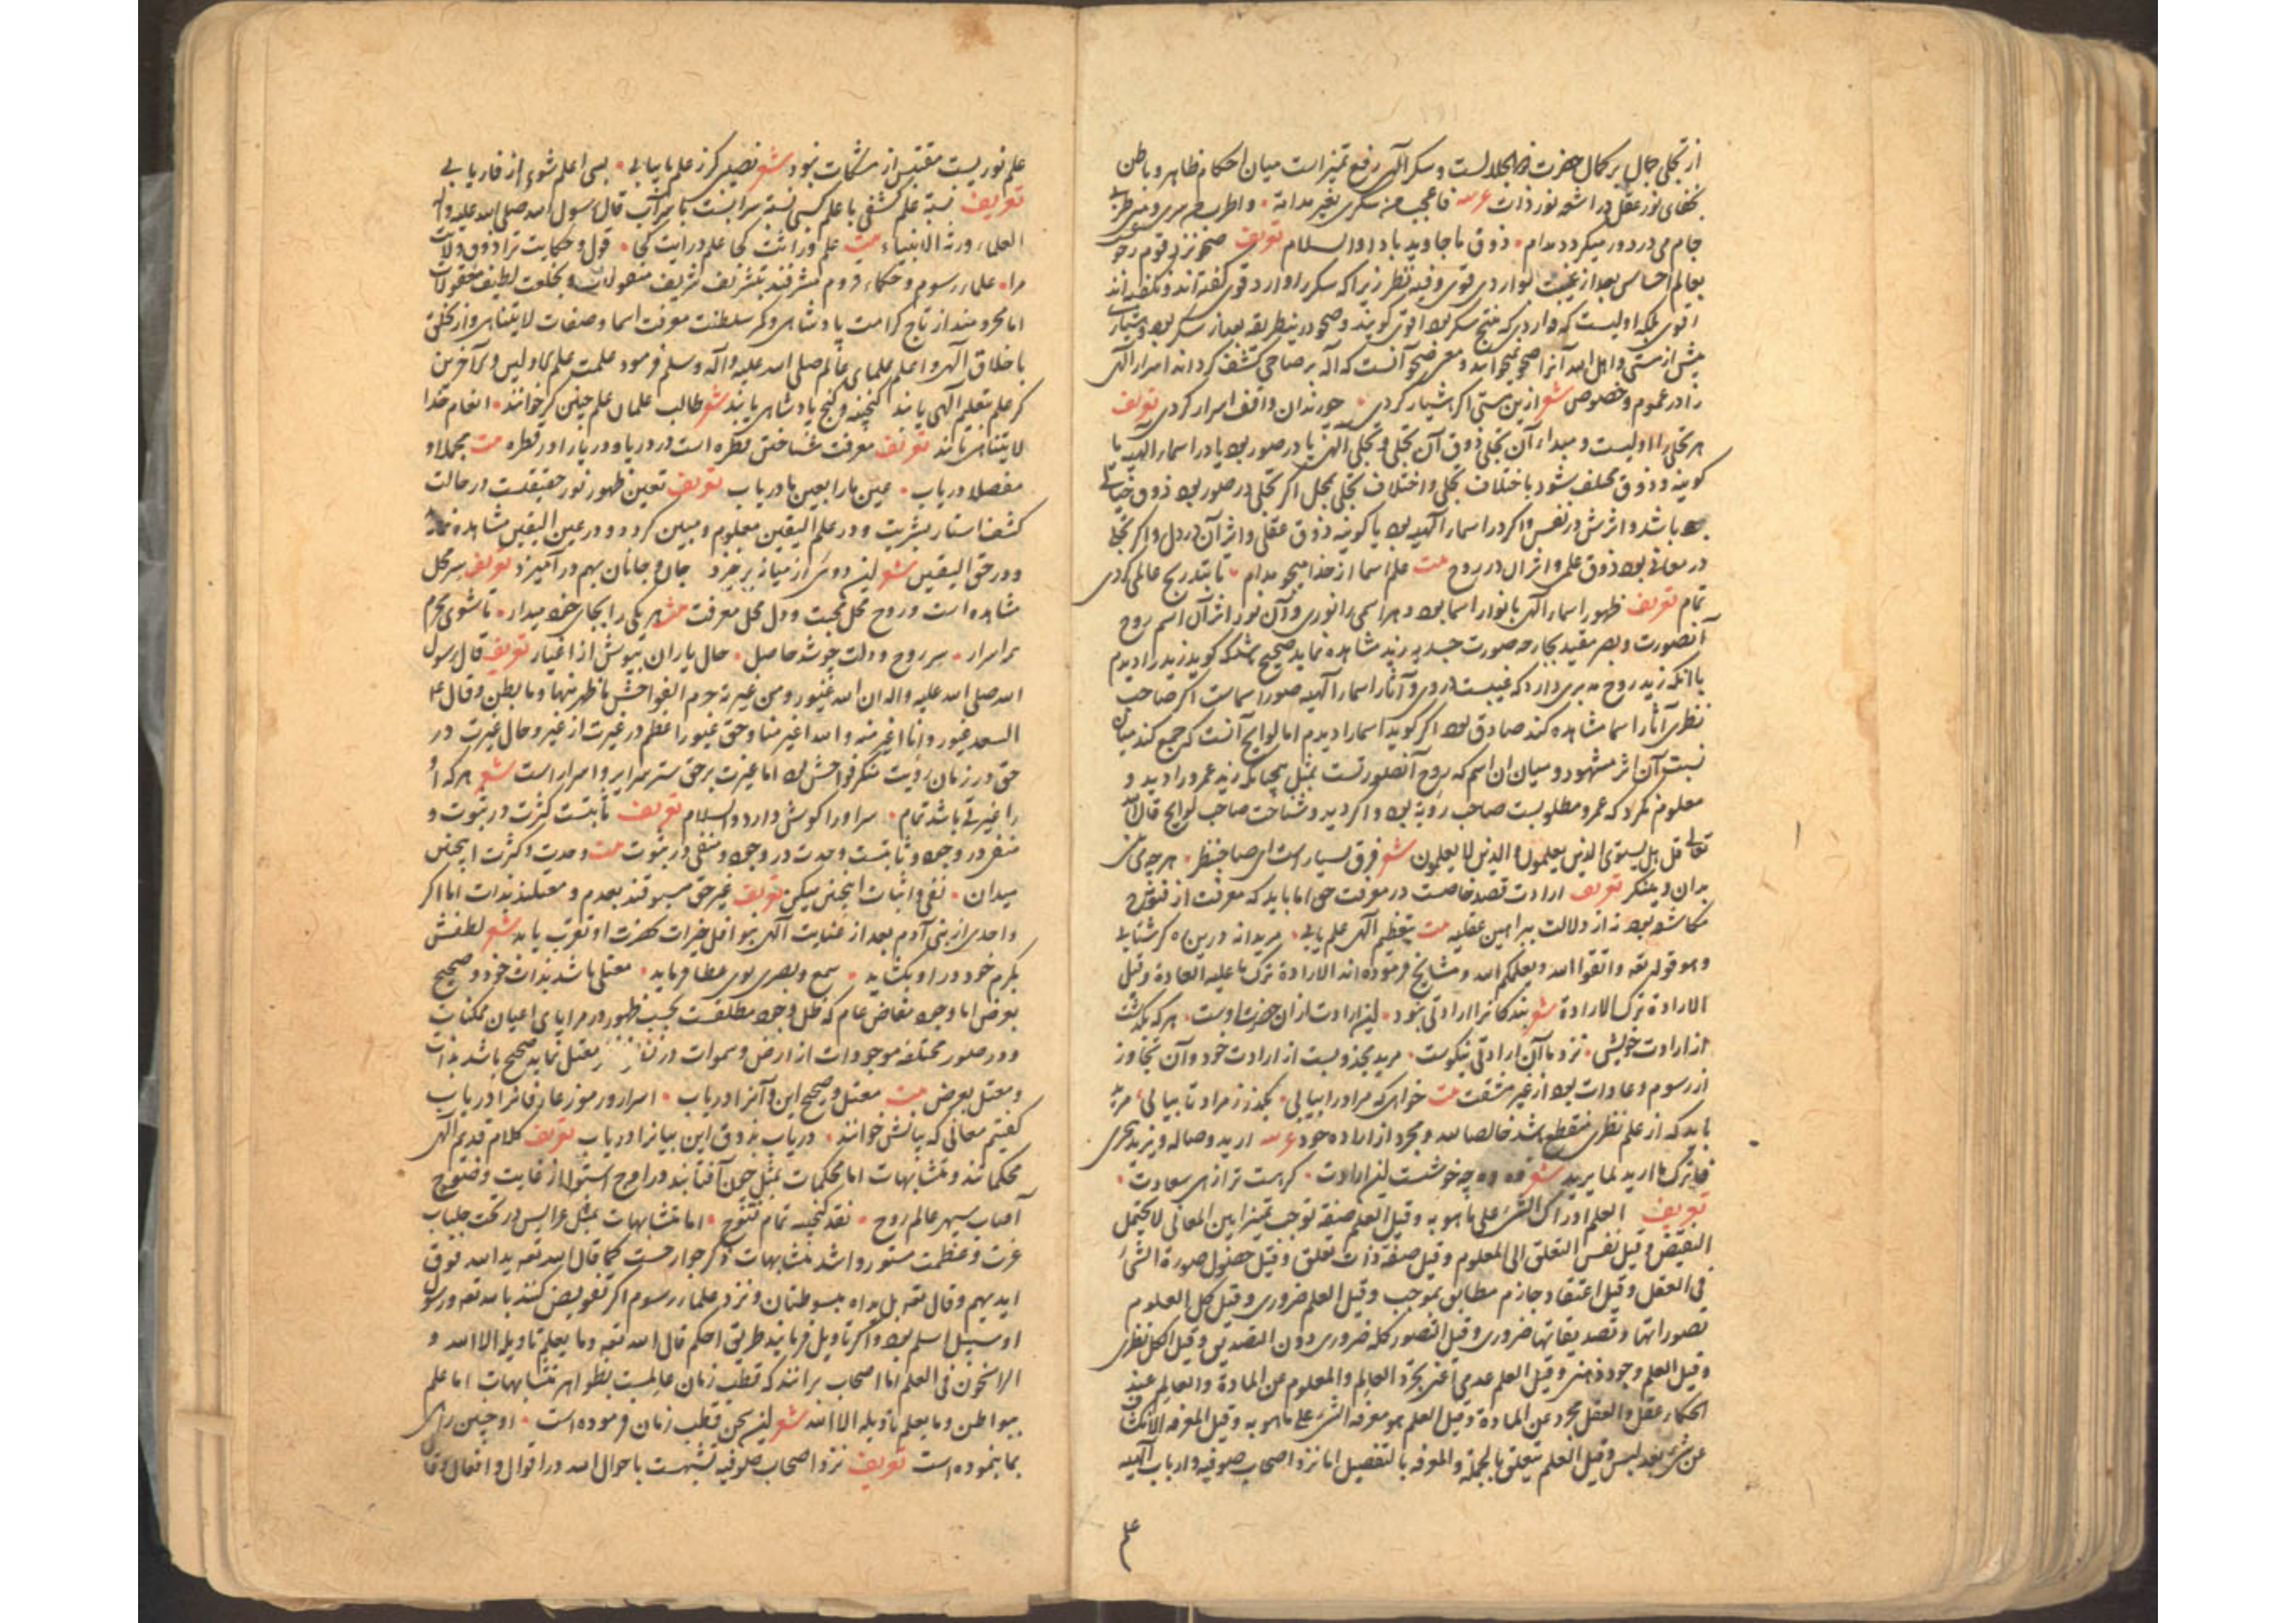 از تجلی جمال بر کمال حضرت ذو الجلالست و سکر الهی رفع تمیز است میان احکام ظاهر و باطن
بخفای نور عقل در اشعه نور ذات عربیه فاعجب من سکری بغیر مدامة و اطرب
جام می در دور میگردد مدام ذوق ما جاوید بادا والسلام تعریف صحو نزد قوم رجوع
بعالم احساس بعد از غیبت بواردی قوی و فیه نظر زیرا که سکر را وارد قوی گفته‌اند و نگفته‌اند
اقوی بلکه اولیست که واردی که منتج سکر بود اقوی گویند و صحو درین طریقه بعد از سکر بود و هشیاری
پیش از مستی و اهل الله آنرا صحو نمیخوانند و معرفت صحو آنست که آله بر صاحی کشف گرداند اسرار الهی
را در عموم و خصوص شعر ازین مستی اگر هشیار گردی چو رندان واقف اسرار گردی تعریف
هر تجلی را اولیست و مبداء آن تجلی ذوق آن تجلی و تجلی الهی یا در صور بود یا در اسماء الهیه یا
کونیه و ذوق مختلف شود باختلاف تجلی و اختلاف تجلی بمجلی اگر تجلی در صور بود ذوق خیالی
باشد و اثرش در نفس و اگر در اسماء الهیه بود یا کونیه ذوق عقلی و اثر آن در دل و اگر تجلی
در معانی بود ذوق علمی و اثر آن در روح بیت علم اسما از خدا میجو مدام تا بتدریج عالمی گردی
تمام تعریف ظهور اسماء الهی بانوار اسما بود و هر اسمی را نوری و آن نور اثر آن اسم روح
آنصورت و بصر مقید بجارحه صورت جسدیه زید مشاهده نماید صحیح باشد که گوید زید را دیدم
با آنکه زید روح مدبری دارد که غیبست در وی و آثار اسماء الهیه صور اسماست اگر صاحب
نظری آثار اسما مشاهده کند صادق بود اگر گوید اسما را دیدم اما لوایح آنست که جمع کند میان
نسبت آن اثر مشهود و میان آن اسم که روح آنصورتست بمثل چنانکه زید عمرو را دید و
معلوم نکرد که عمرو مطلوبست صاحب رؤیه بود و اگر دید و شناخت صاحب لوایح قال الله
تعالی قل هل یستوی الذین یعلمون والذین لا یعلمون شعر فرق بسیار است ای صاحبنظر هر چه می بینی
بدان و مینگر تعریف ارادت قصد خاصست در معرفت حق اما باید که معرفت از فتوح
مکاشفه بود نه از دلالت براهین عقلیه بیت بتعظیم الهی علم یابی مریدانه درین ره گر شتابی
و هو قوله تعه واتقوا الله ویعلمکم الله و مشایخ فرموده‌اند الارادة ترک ما علیه العادة وقیل
الارادة ترک الارادة شعر بندگانرا ارادتی نبود این ارادت از آن حضرت اوست هر که بگذشت
از ارادت خویش نزد ما آن ارادتی نیکوست مرید مجذوبست از ارادت خود و آن تجاوز
از رسوم و عادات بود از غیر مشقت بیت خواهی که مراد را بیابی بگذر ز مراد تا بیابی مرید
باید که از علم نظری منقطع باشد خالصا لله و مجرد از اراده خود عربیه ارید وصاله ویرید هجری
فاترک ما ارید لما یرید شعر وه وه چه خوشست این ارادت گر هست ترا زهی سعادت
تعریف العلم ادراک الشئ علی ما هو به وقیل العلم صفة توجب تمیزا بین المعانی لا یحتمل
النقیض وقیل نفس التعلق الی المعلوم وقیل صفة ذات تعلق وقیل حصول صورة الشئ
فی العقل وقیل اعتقاد جازم مطابق بموجب وقیل العلم ضروری وقیل کل العلوم
تصوراتها وتصدیقاتها ضروری وقیل التصور کله ضروری دون التصدیق وقیل الکل نظری
وقیل العلم وجود ذهنی وقیل العلم عدمی اعنی تجرد العالم والمعلوم عن المادة والعالم عند
الحکماء عقل والعقل مجرد عن المادة وقیل العلم هو معرفة الشئ علی ما هو به وقیل المعرفه انکشاف
عن شئ بعد لبس وقیل العلم یتعلق بالجملة والمعرفه بالتفصیل اما نزد اصحاب صوفیه و ارباب الهیه
علم
علم نوریست مقتبس از مشکات نبوت شعر نصیبی گر ز علم ما بیابی بسی اعلم شوی از فاریابی
تعریف نسبة علم کشفی با علم کسبی نسبة سرابست با سرآب قال رسول الله صلی الله علیه وآله
العلماء ورثة الانبیاء بیت علم وراثت کجا علم درایت کجا قول و حکایت ترا ذوق ولایت
مرا علماء رسوم و حکماء قروم مشرفند بتشریف شریف منقولات و بخلعت لطیف معقولات
اما محرومند از تاج کرامت پادشاهی و کمر سلطنت معرفت اسما و صفات لایتناهی و از تخلق
باخلاق الهی و اعلم علمای عالم صلی الله علیه وآله وسلم فرمود علمت علم الاولین والآخرین
گر علم بتعلیم الهی یابند گنجینه و گنج پادشاهی یابند شعر طالب علمان علم چنین گر خوانند انعام خدا
لایتناهی یابند تعریف معرفت شناختن قطره است در دریا و دریا را در قطره بیت مجملا و
مفصلا دریاب عین ما را بعین ما دریاب تعریف تعین ظهور نور حقیقتست در حالت
کشف استار بشریت و در علم الیقین معلوم و مبین گردد و در عین الیقین مشاهده نماید
و در حق الیقین شعر این دوی از میانه برخیزد جان و جانان بهم درآمیزد تعریف سر محل
مشاهده است و روح محل محبت و دل محل معرفت مثنوی هر یکی را بجای خود میدار تا شوی محرم
بر اسرار سر روح و دلت چو شد حاصل حال یاران بپوش از اغیار تعریف قال رسول
الله صلی الله علیه واله ان الله غیور ومن غیرته حرم الفواحش ما ظهر منها وما بطن وقال ع م
السعد غیور وانا اغیر منه والله اغیر منا و حق غیور اعظم در غیرت از غیر و حال غیرت در
حق در زمان رؤیت منکر فواحش بود اما غیرت بر حق ستر سرایر و اسرار است شعر هر که او
را غیرتی باشد تمام سر او را گوش دارد والسلام تعریف ثابتست کثرت در ثبوت و
منفی در وجود و ثابتست وحدت در وجود و منفی در ثبوت بیت وحدت و کثرت اینچنین
میدان نفی و اثبات اینچنین میکن تعریف غیر حق مسبوقند بعدم و معتلند بذات اما اگر
واحدی از بنی آدم بعد از عنایت الهی بنوافل خیرات بحضرت او تقرب یابد شعر لطفش
بکرم خود در او بگشاید سمع و بصری بوی عطا فرماید معتل باشد بذات خود و صحیح
بعرض اما وجود مفاض عام که ظل وجود مطلقست بحسب ظهور در مرایای اعیان ممکنات
و در صور مختلفه موجودات از ارض و سموات معتل نماید صحیح باشد بذات
و معتل بعرض بیت معتل و صحیح این و آنرا دریاب اسرار و رموز عارفانرا دریاب
گفتیم معانی که بیانش خوانند دریاب بذوق این بیانرا دریاب تعریف کلام قدیم الهی
محکماتند و متشابهات اما محکمات بمثل چون آفتابند در اوج استوا از غایت وضوح
آفتاب سپهر عالم روح نقد گنجینه تمام فتوح اما متشابهات بمثل عرایس در تحت جلباب
عزت و عظمت مستور و اشد متشابهات ذکر جوارحست کما قال الله تعه ید الله فوق
ایدیهم وقال تعه بل یداه مبسوطتان و نزد علماء رسوم اگر تفویض کنند بالله تعه و رسول
او سبیل اسلم بود و اگر تأویل فرمایند طریق احکم قال الله تعه وما یعلم تأویله الا الله و
الراسخون فی العلم اما اصحاب برانند که قطب زمان عالمست بظواهر متشابهات اما علم
ببواطن وما یعلم تأویله الا الله شعر این سخن قطب زمان فرموده است او چنین راهی
بما بنموده است تعریف نزد اصحاب صوفیه تشبهست باحوال الله در اقوال و افعال